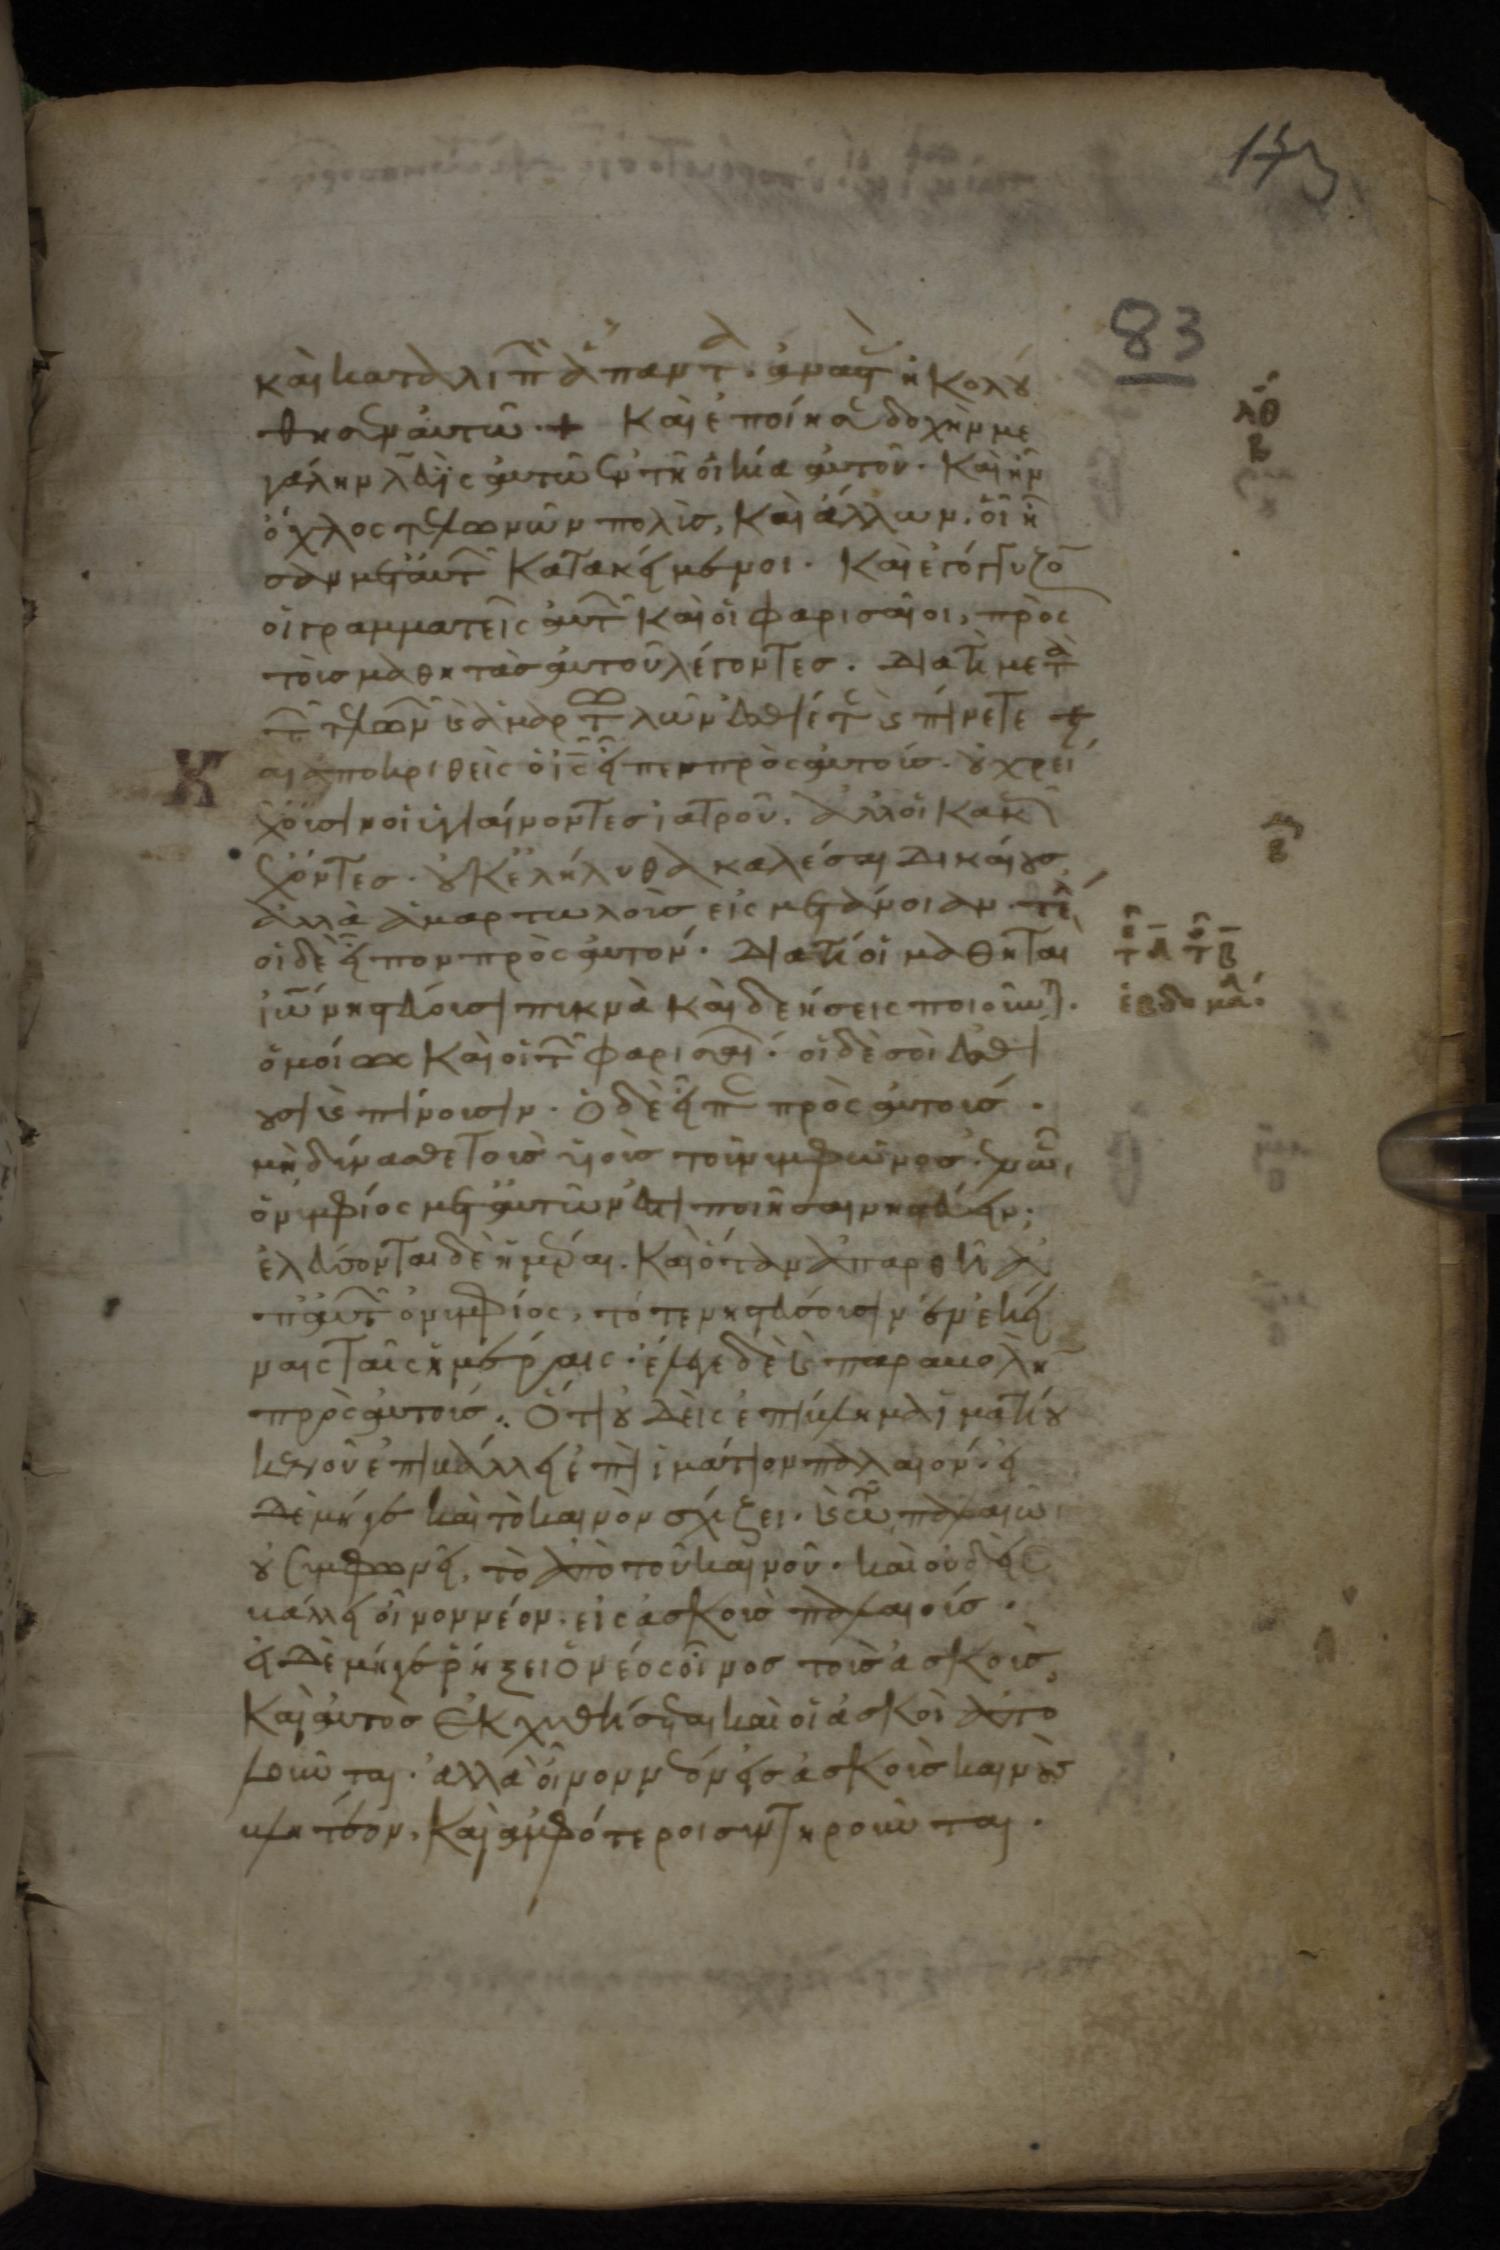 143
83
καὶ καταλιπὼν ἅπαντα. ἀναστὰς ἠκολού
θησεν αὐτῶ + Καὶ ἐποίησε δοχὴν με
γάλην λευῒς αὐτῶ ἐν τῆ οἰκία αὐτοῦ. Καὶ ἦν
ὄχλος τελωνῶν πολὺς, Καὶ ἄλλων. οἳ ἦ
σαν μετ αὐτοῦ Κατακείμενοι. Καὶ ἐγόγγυζον
οἱ γραμματεῖς αὐτῶν Καὶ οἱ φαρισαῖοι, πρὸς
τοὺς μαθητὰς αὐτοῦ λέγοντες. Διατί μετὰ
τῶν τελωνῶν καὶ ἁμαρτωλῶν ἐσθίετε καὶ πίνετε + Κ
αὶ ἀποκριθεὶς ὁ ις εἶπεν πρὸς αὐτούς. οὐ χρεί
ἔχουσιν οἱ ὑγιαίνοντες ἰατροῦ. ἀλλ οἱ κακῶς
ἔχοντες. οὐκ ἐλήλυθα καλέσαι Δικαίους,
ἀλλὰ ἁμαρτωλοὺς εἰς μετάνοιαν. τέλος
οἱ δὲ εἶπον πρὸς αὐτόν. Διατί οἱ μαθηταὶ
ἰωάννου νηστεύουσι πυκνὰ καὶ δεήσεις ποιοῦνται.
ὁμοίως Καὶ οἱ τῶν φαρισαίων. οἱ δὲ σοὶ ἐσθί
ουσι καὶ πίνουσιν. ὁ δὲ εἶπε πρὸς αὐτούς.
μὴ δύνασθε τοὺς υἱοὺς τοῦ νυμφῶνος. ἐν ὧ,
ὁ νυμφίος μετ αὐτῶν ἐστι ποιῆσαι νηστεύειν;
ἐλεύσονται δὲ ἡμέραι. Καὶ ὅταν ἀπαρθῆ ἀ
π αὐτῶν ὁ νυμφίος, τότε νηστεύσουσιν ἐν ἐκεί
ναις ταῖς ἡμέραις. ἔλεγε δὲ καὶ παραβολὴν
πρὸς αὐτούς. Ὅτι οὐδεὶς ἐπίβλημα ἱματίου
καινοῦ ἐπιβάλλει ἐπὶ ἱμάτιον παλαιόν. εἰ
Δὲ μήγε καὶ τὸ καινὸν σχίζει. καὶ τῶ παλαιῶ
οὐ συμφωνεῖ, τὸ ἀπὸ τοῦ καινοῦ. καὶ οὐδεὶς
βάλλει οἶνον νέον. εἰς ἀσκοὺς παλαιούς.
εἰ Δὲ μήγε ῥήξει ὁ νέος οἶνος τοὺς ἀσκοὺς,
Καὶ αὐτὸς ἐκχυθήσεται καὶ οἱ ἀσκοὶ ἀπο
λοῦνται. ἀλλὰ οἶνον νέον εἰς ἀσκοὺς καινοὺς
βλητέον. Καὶ ἀμφότεροι συντηροῦνται.
λθ
β
ἑβδομά.